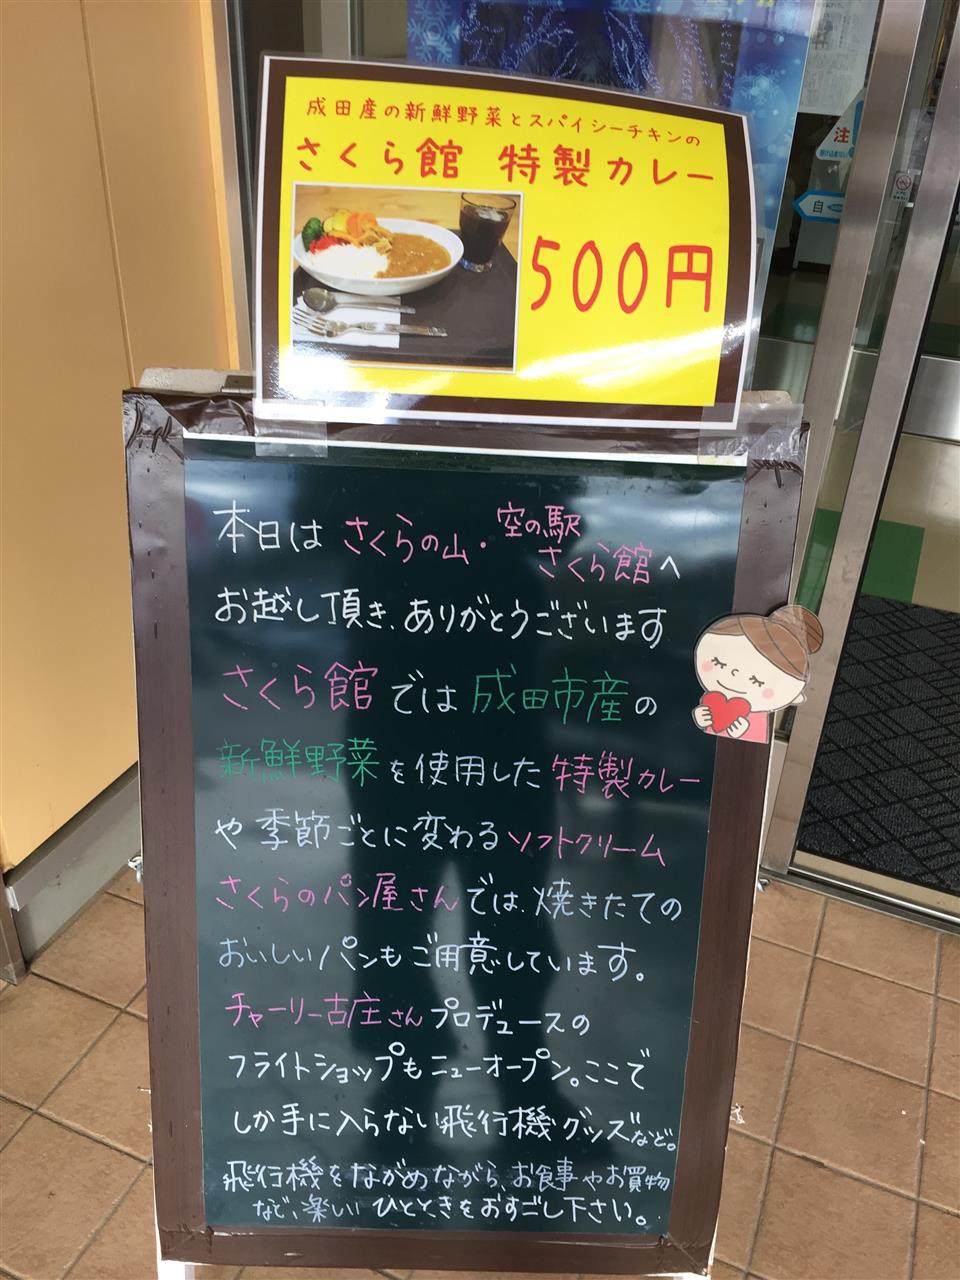 成田産の新鮮野菜とスパイシーチキンの
さくら館 特製カレー
500円
注
自
本日は さくらの山・空の駅
さくら館へ
お越し頂き、ありがとうございます
さくら館では成田市産の
新鮮野菜を使用した特製カレー
や季節ごとに変わるソフトクリーム
さくらのパン屋さんでは、焼きたての
おいしいパンもご用意しています。
チャーリー古庄さんプロデュースの
フライトショップもニューオープン。ここで
しか手に入らない飛行機グッズなど。
飛行機をながめながら、お食事やお買物
など、楽しいひとときをおすごし下さい。